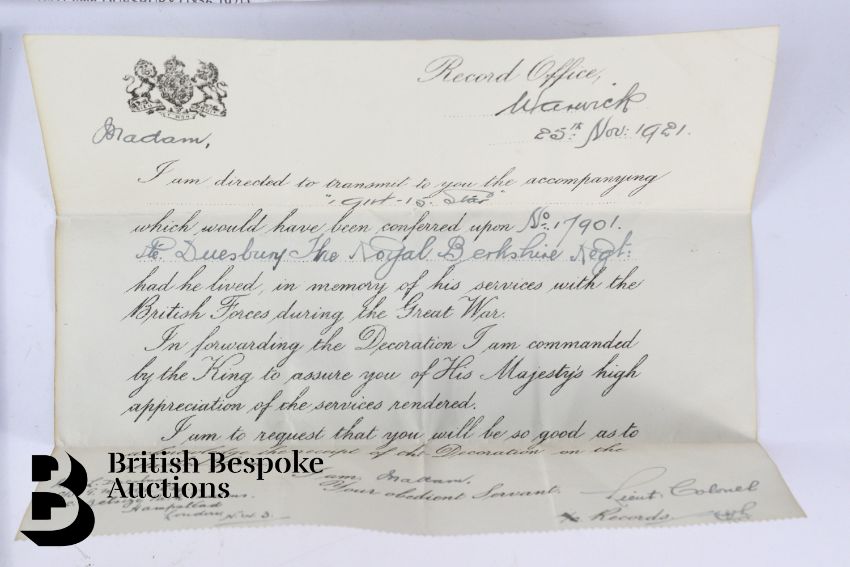 Record Office,
Warwick
25th Nov: 1921.
Madam,
I am directed to transmit to you the accompanying
"1914-15 Star"
which would have been conferred upon No. 17901.
Pte Duesbury The Royal Berkshire Regt:
had he lived, in memory of his services with the
British Forces during the Great War.
In forwarding the Decoration I am commanded
by the King to assure you of His Majesty's high
appreciation of the services rendered.
I am to request that you will be so good as to
the receipt of the Decoration on the
I am, Madam,
Your obedient Servant
Lieut Colonel
Records
Hampstead
London N.W.3.
British Bespoke
Auctions